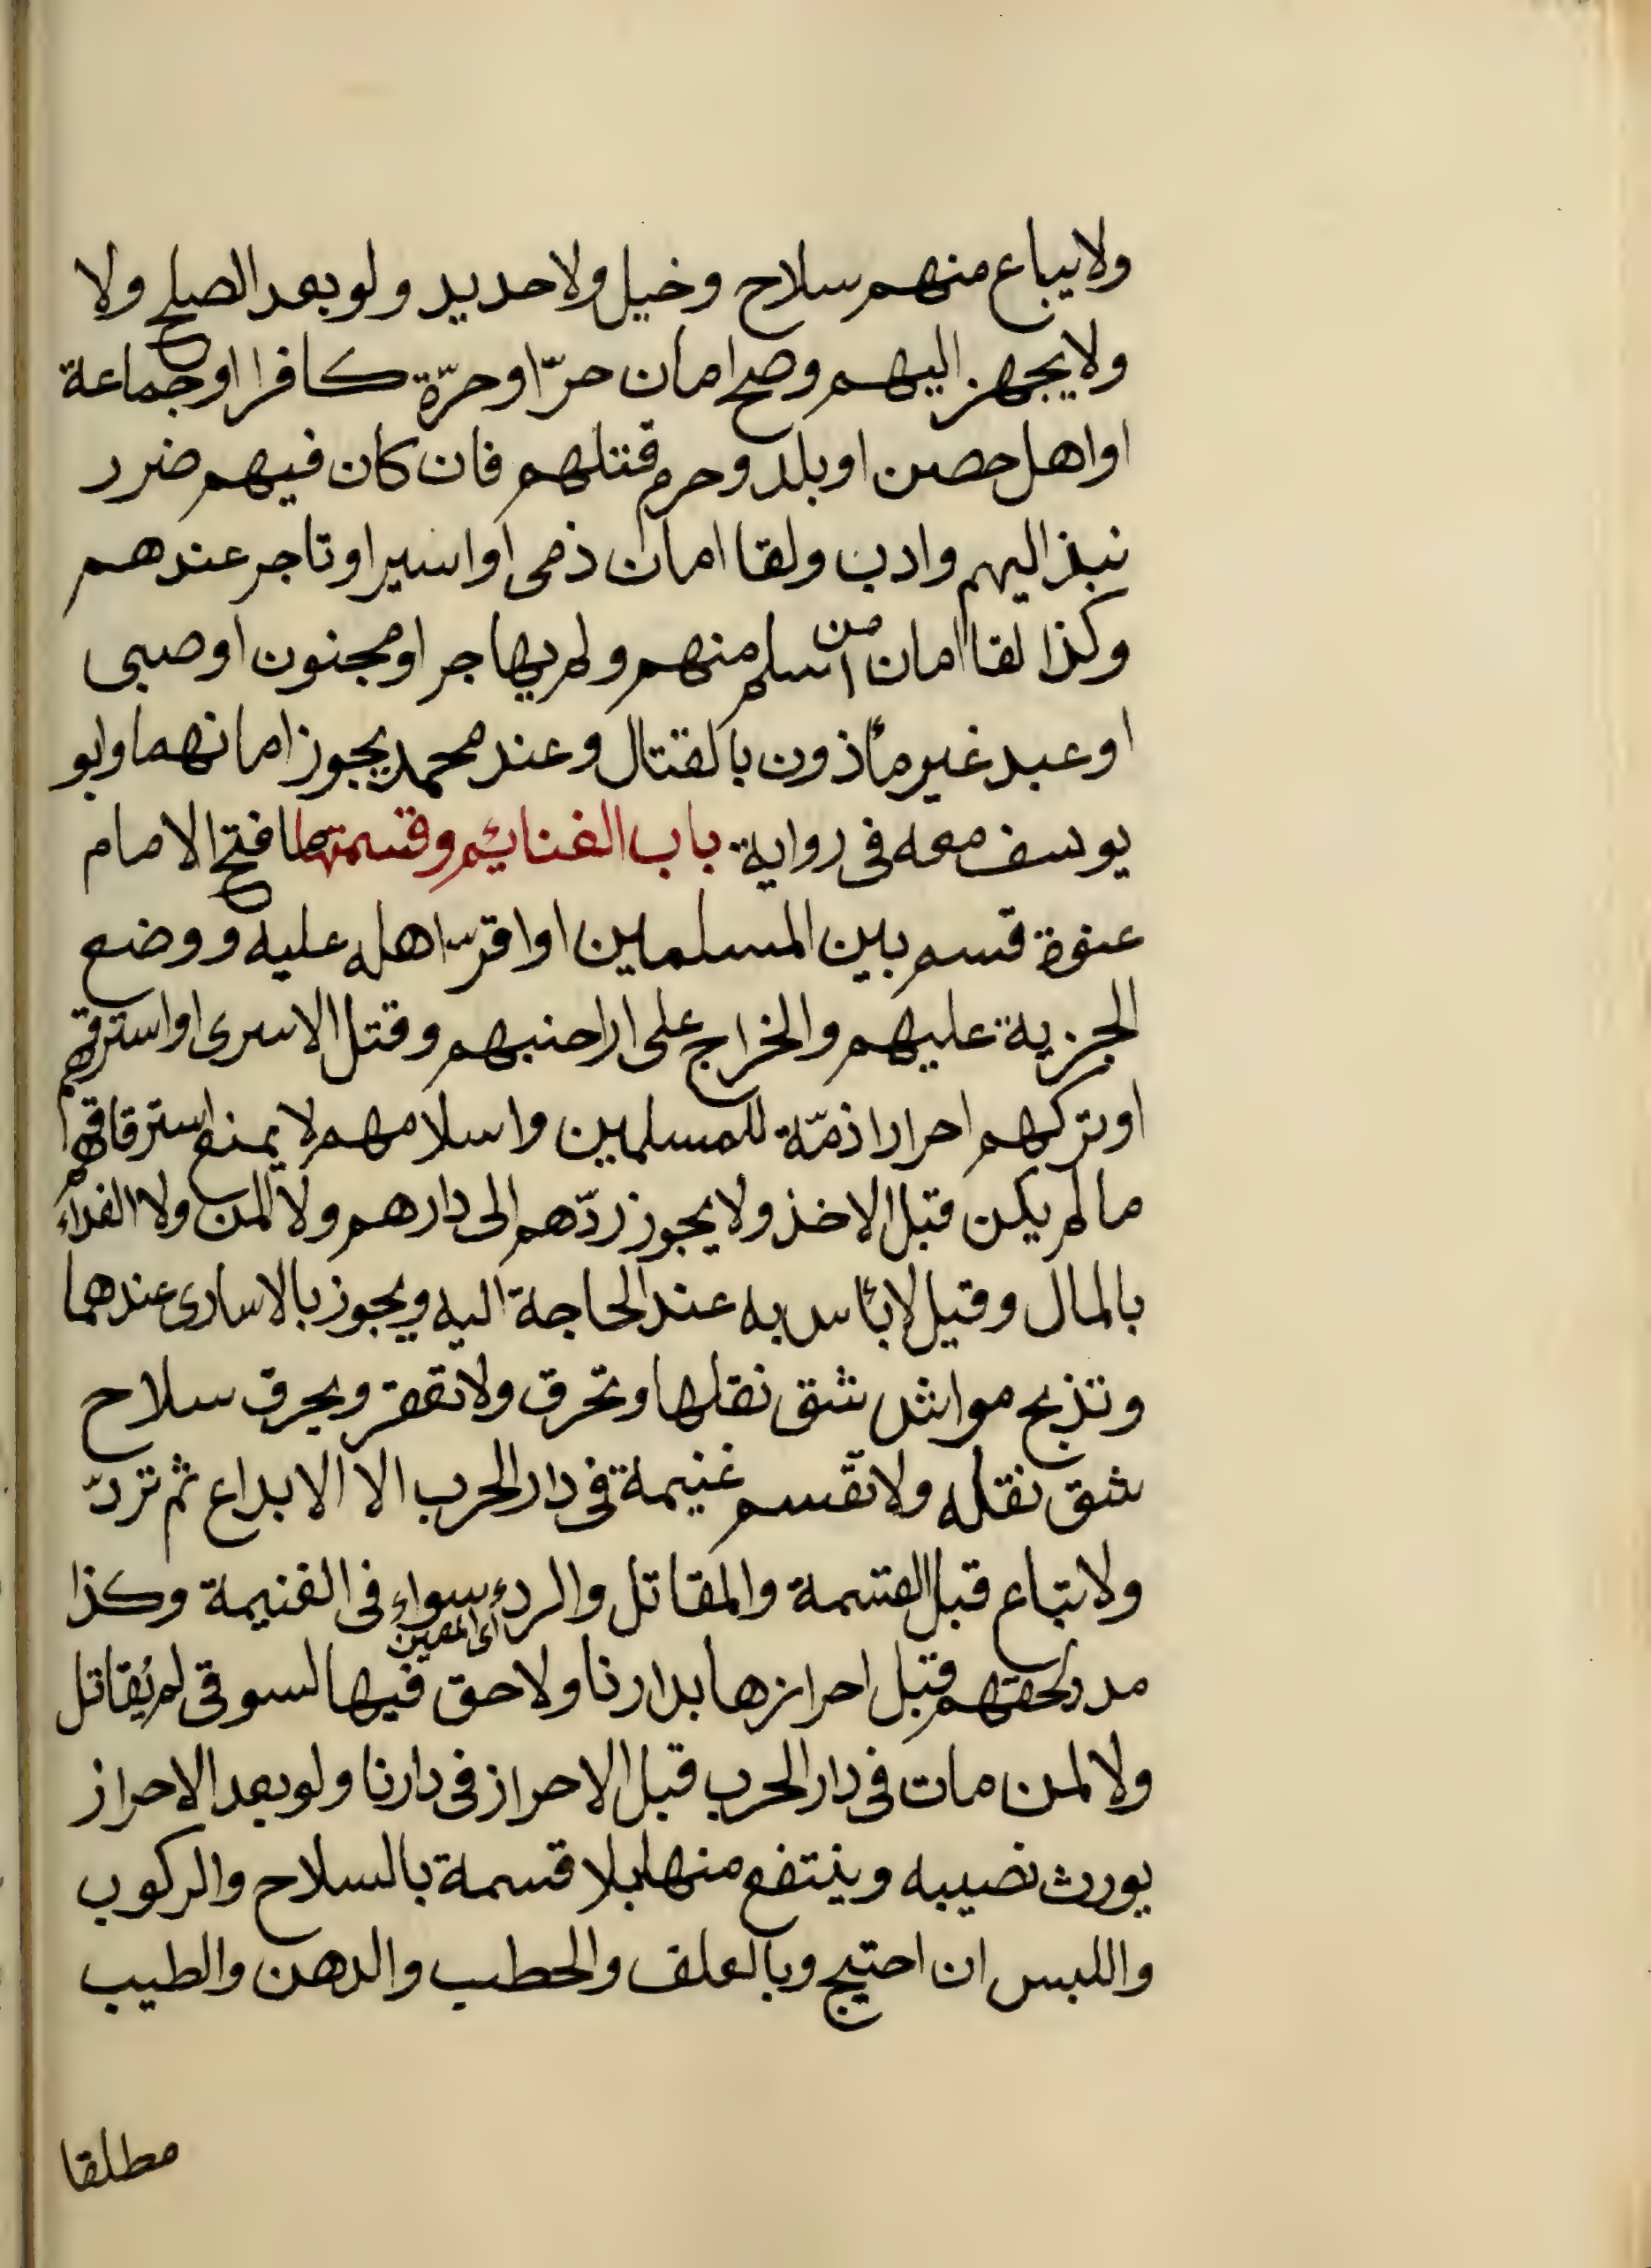 ولا يباع منهم سلاح وخيل ولا حديد ولو بعد الصلح ولا
ولا يجهز اليهم وصح امان حرّ او حرّة كافرا او جماعة
او اهل حصن او بلد وحرم قتلهم فان كان فيهم ضرر
نبذ اليهم وادب ولغا امان ذمى او اسير او تاجر عندهم
وكذا لغا امان من اسلم منهم ولم يهاجر او مجنون او صبى
او عبد غير مأذون بالقتال وعند محمد يجوز امانهما وابو
يوسف معه فى رواية باب الغنايم وقسمتها ما فتح الامام
عنوة قسم بين المسلمين او اقرّ اهله عليه ووضع
الجزية عليهم والخراج على اراضيهم وقتل الاسرى او استرقهم
او تركهم احرارا ذمّة للمسلمين واسلامهم لا يمنع استرقاقهم
ما لم يكن قبل الاخذ ولا يجوز ردّهم الى دارهم ولا المن ولا الفداء
بالمال وقيل لا بأس به عند الحاجة اليه ويجوز بالاسارى عندهما
وتذبح مواش شق نقلها وتحرق ولا تعقر ويحرق سلاح
شق نقله ولا تقسم غنيمة فى دار الحرب الا الابداع ثم تردّ
ولا تباع قبل القسمة والمقاتل والردء سواء فى الغنيمة وكذا
اى المعين
مدد لحقهم قبل احرازها بدارنا ولا حق فيها لسوقى لم يُقاتل
ولا لمن مات فى دار الحرب قبل الاحراز فى دارنا ولو بعد الاحراز
يورث نصيبه وينتفع منها بلا قسمة بالسلاح والركوب
واللبس ان احتيج وبالعلف والحطب والدهن والطيب
مطلقا